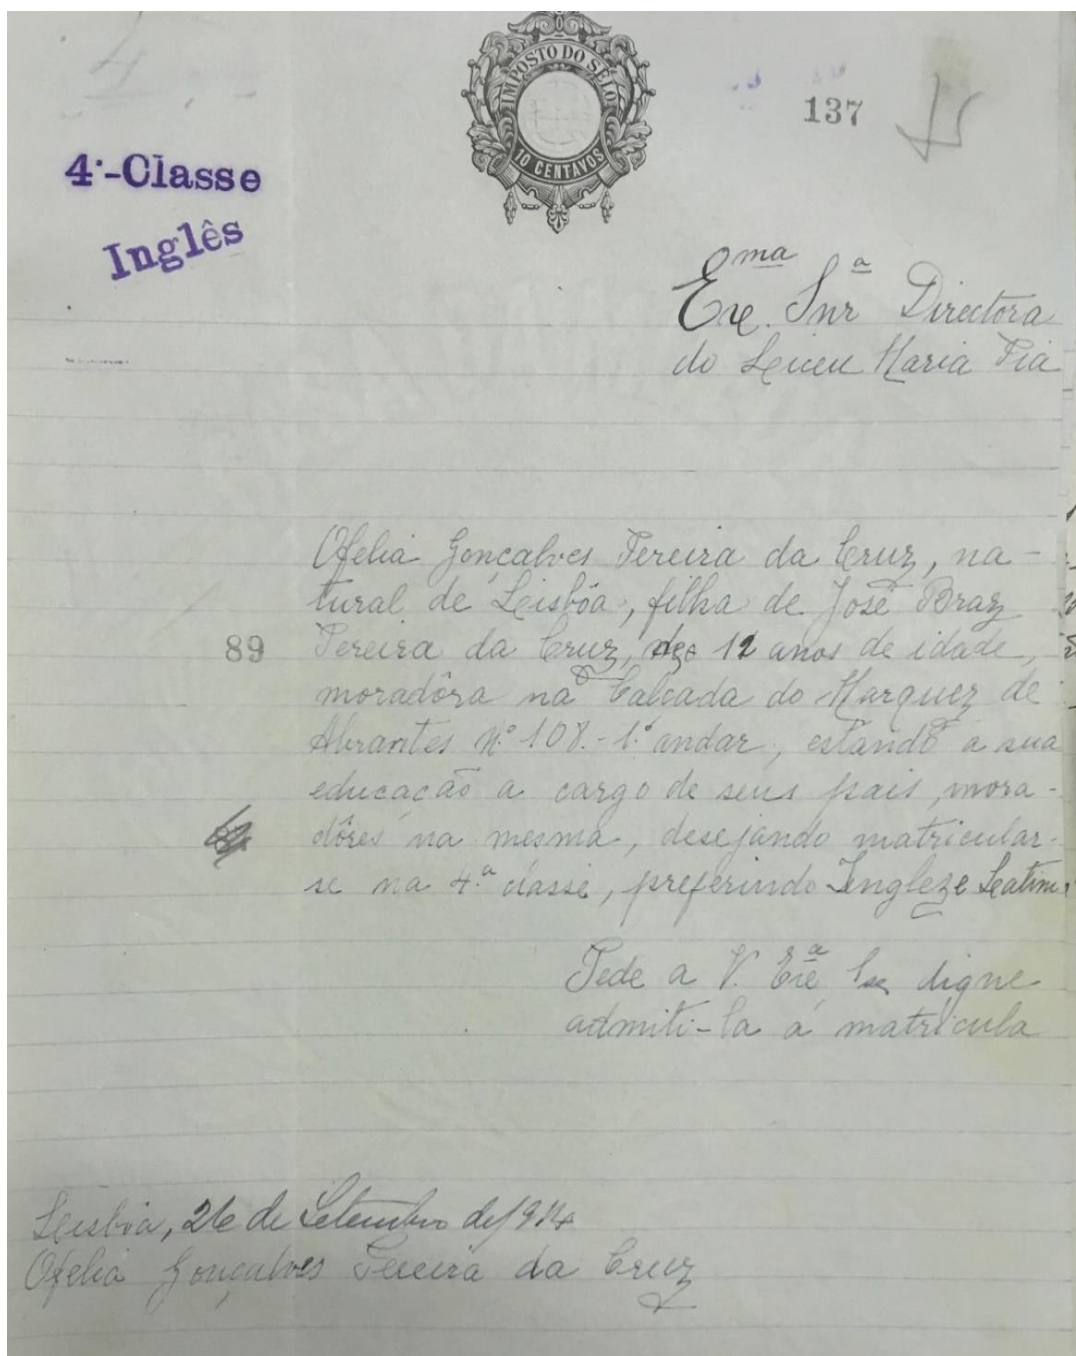 IMPOSTO DO SELO
10 CENTAVOS
137
4ª-Classe
Inglês
Exe.ma Snr.a Directora
do Liceu Maria Pia
Ofelia Gonçalves Pereira da Cruz, na-
tural de Lisbôa, filha de José Braz
89
Pereira da Cruz, de 12 anos de idade,
moradôra na Calçada do Marquez de
Abrantes Nº 108.-1.º andar, estando a sua
educação a cargo de seus pais, mora-
dôres na mesma, desejando matricular-
se na 4.ª classe, preferindo Inglez e Latim
Pede a V. Exª se digne
admiti-la á matricula
Lisbôa, 26 de Setembro de 1914
Ofelia Gonçalves Pereira da Cruz